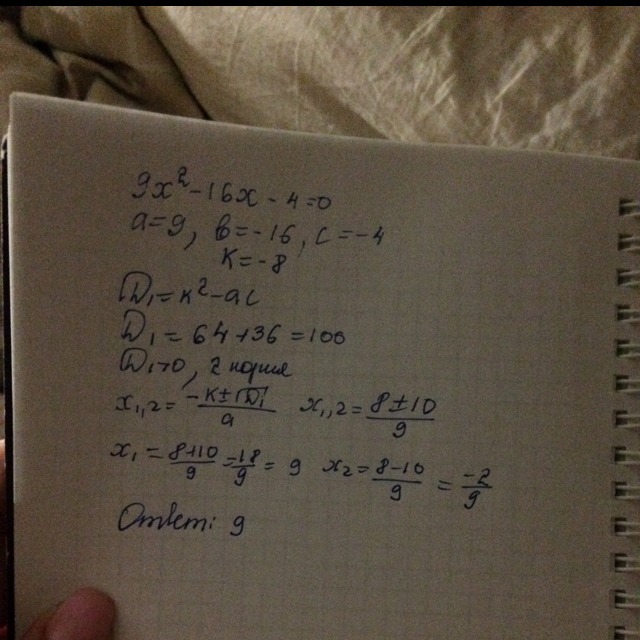 9x²-16x-4=0
a=9, в=-16, c=-4
к=-8
D₁=к²-ac
D₁=64+36=100
D₁>0, 2 корня
x₁,₂=(-к±√D₁)/a x₁,₂=(8±10)/9
x₁=(8+10)/9=18/9=9 x₂=(8-10)/9=-2/9
Ответ: 9